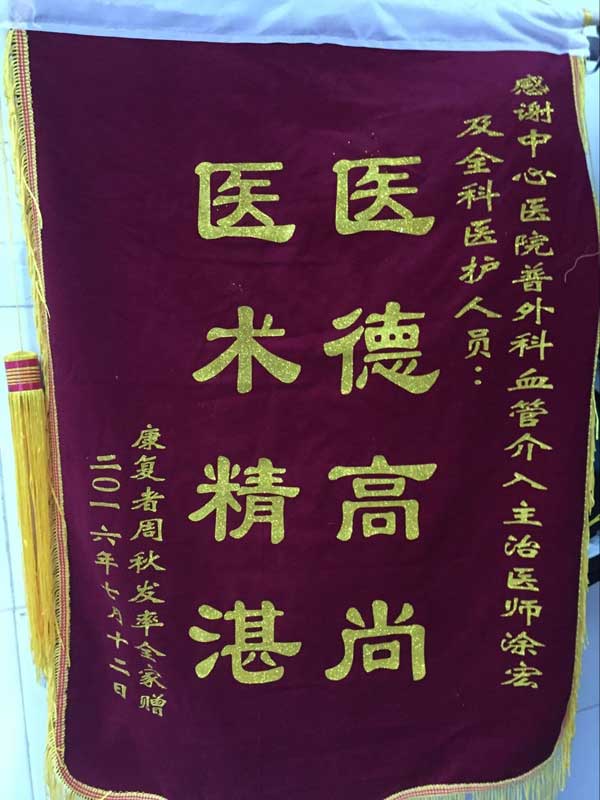 感谢中心医院普外科血管介入主治医师涂宏
及全科医护人员：
医德高尚
医术精湛
康复者周秋发率全家赠
二〇一六年七月十二日